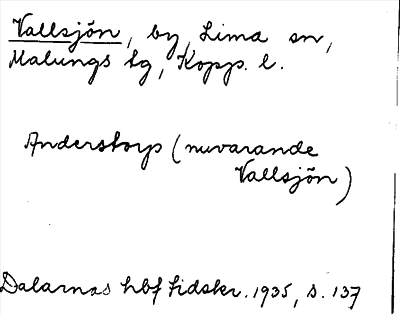 Vallsjön, by, Lima sn,
Malungs tg, Kopp. l.
Anderstorp (nuvarande
Vallsjön)
Dalarnas hbf tidskr. 1935, s. 137